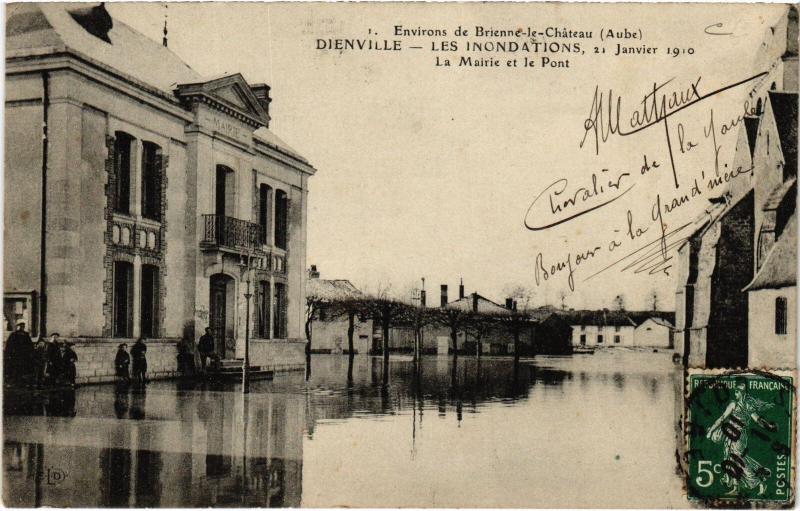 1. Environs de Brienne-le-Château (Aube)
DIENVILLE — LES INONDATIONS, 21 Janvier 1910
La Mairie et le Pont
MAIRIE
Chevalier de la
Bonjour à la grand'mère
ELD
REPUBLIQUE FRANÇAISE
5c
POSTES